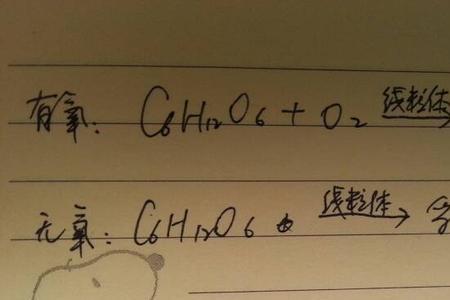 有氧: C6H12O6 + O2 线粒体→
无氧: C6H12O6 线粒体→